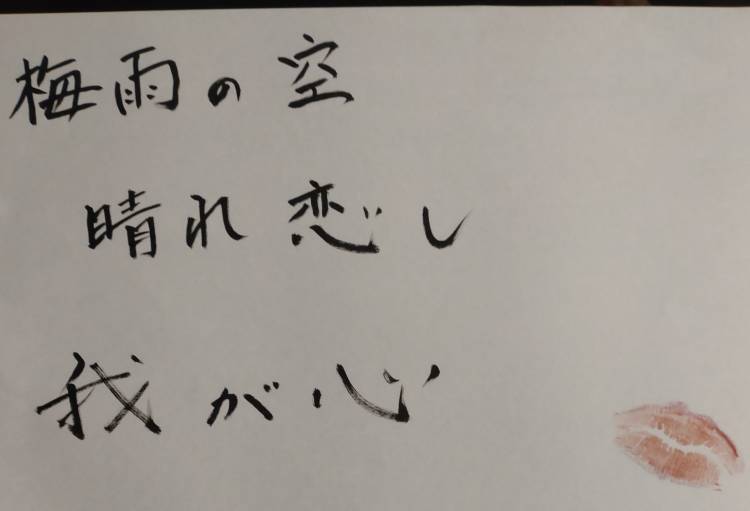 梅雨の空
晴れ恋し
我が心